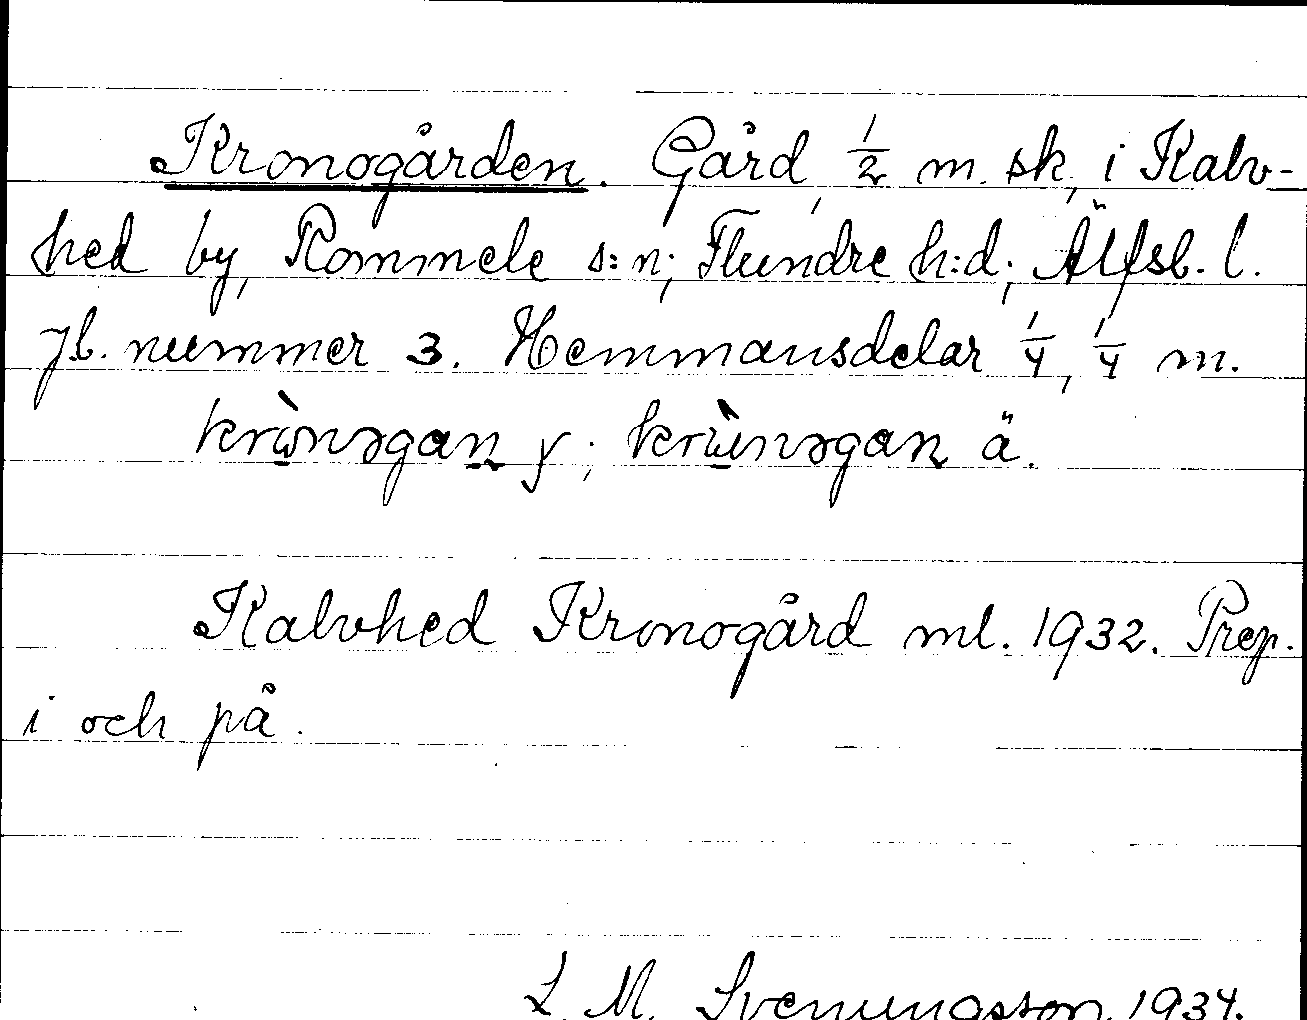 Kronogården. Gård, 1/2 m. sk, i Kalv-
hed by, Rommele s:n; Flundre h:d; Älfsb. l.
Jb. nummer 3. Hemmansdelar 1/4, 1/4 m.
y; ä.
Kalvhed Kronogård ml. 1932. Prep.
i och på.
L. M. Svenungsson 1934.